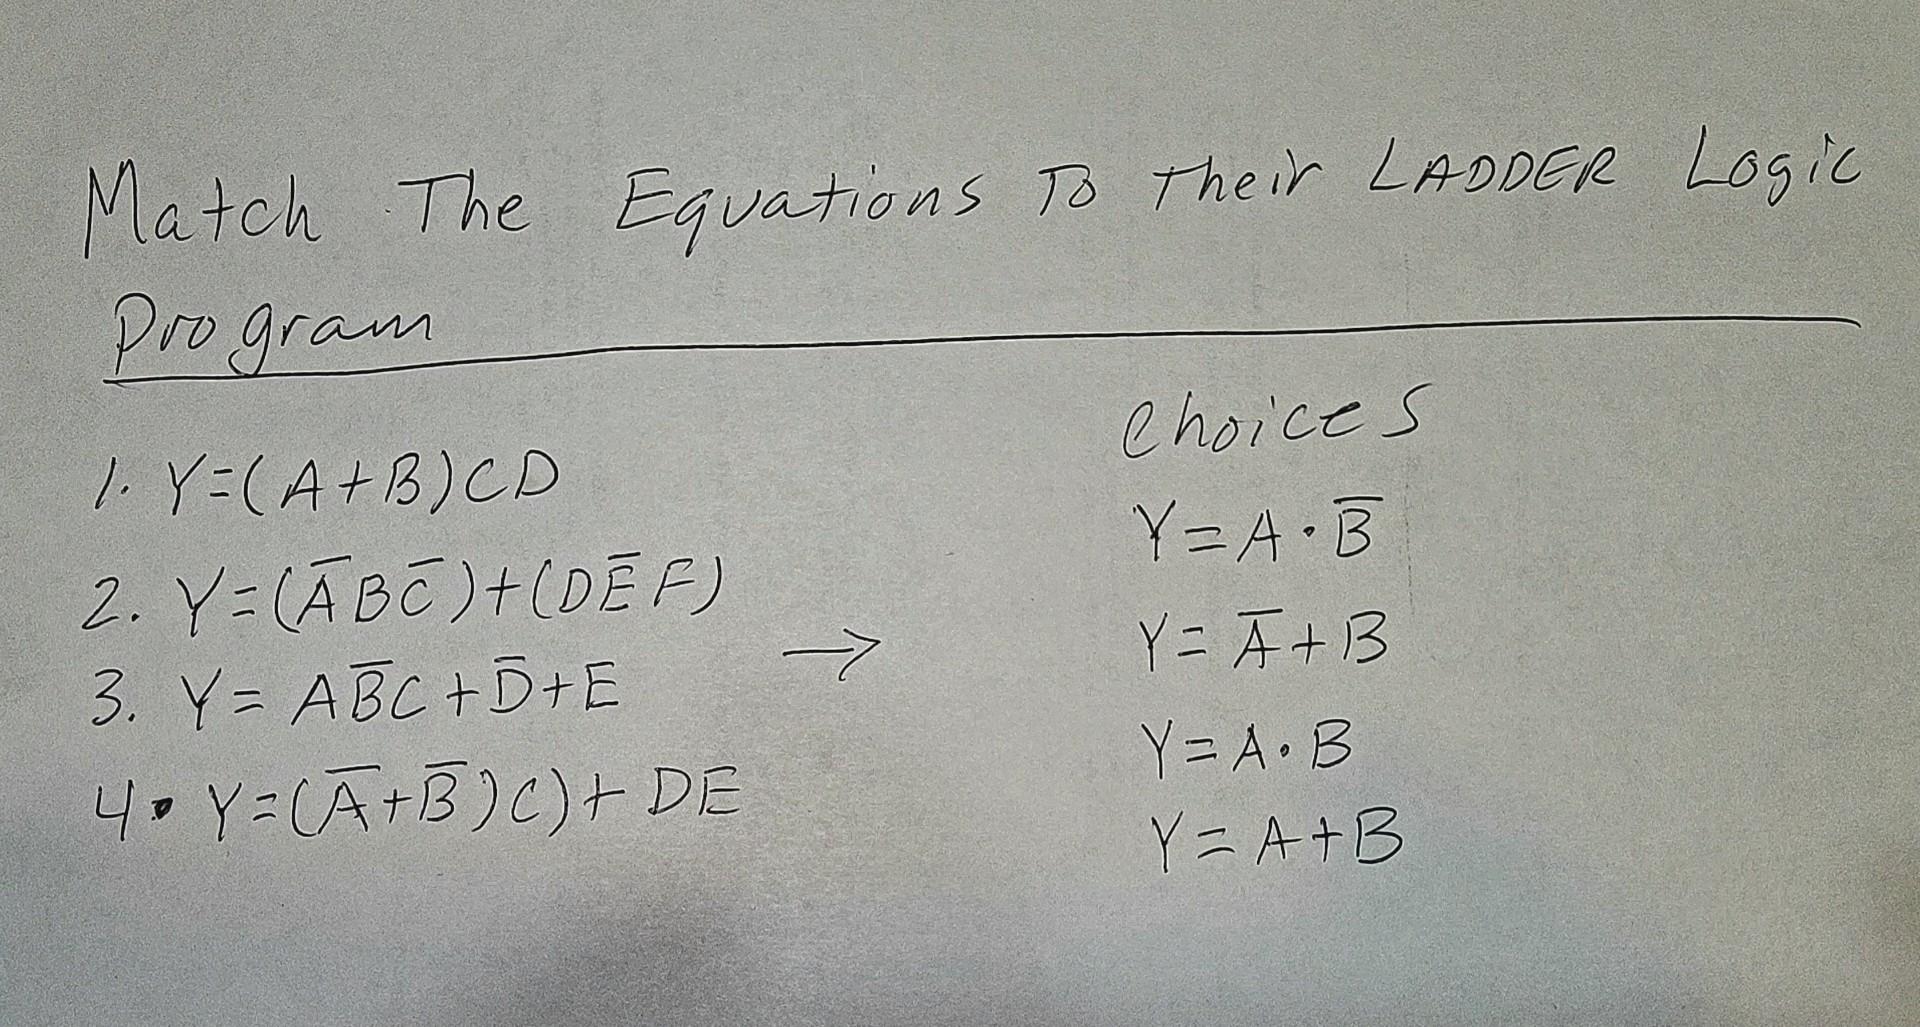 Match The Equations To Their LADDER Logic
Program
1. Y=(A+B)CD
2. Y=(A̅BC̅)+(DE̅F)
3. Y=AB̅C+D̅+E
4. Y=(A̅+B̅)C)+DE
→
Choices
Y=A·B̅
Y=A̅+B
Y=A·B
Y=A+B